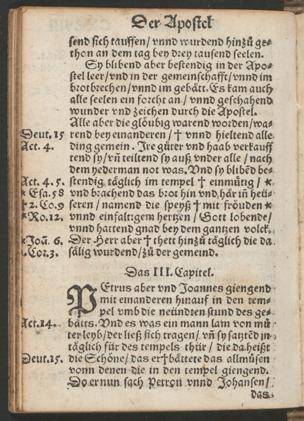 Der Apostel
send sich tauffen/ vnnd wurdend hinzů ge-
thon an dem tag bey drey tausend seelen.
Sy blibend aber bestendig in der Apo-
stel leer/ vnd in der gemeinschafft/ vnnd im
brotbrechen/ vnnd im gebått. Es kam auch
alle seelen ein forcht an/ vnnd geschahend
wunder vnd zeichen durch die Apostel.
Alle aber die gloübig warend worden/ wa-
Deut.15 rend bey einanderen/ † vnnd hieltend alle
Act. 4. ding gemein. Jre güter vnd haab verkauff
tend sy/ vñ teiltend sy auß vnder alle/ nach
dem yederman not was. Vnd sy blibẽd be-
Act. 4. 5. stendig täglich im tempel † einmütig/ *
* Esa.58 vnd brachend das brot hin vnd här in heü-
† 2. Co.9 seren/ namend die speyß † mit fröuden *
* Ro.12. vnnd einfaltigem hertzen/ Gott lobende/
vnnd hattend gnad bey dem gantzen volck.
* Joã. 6. Der Herr aber † thett hinzů täglich die da
1.Cor.3. sälig wurdend/ zů der gemeind.
Das III. Capitel.
PEtrus aber vnd Joannes giengend
mit einanderen hinauf in den tem-
pel vmb die neündten stund des ge-
Act.14. bätts. Vnd es was ein mann lam von mů
ter leyb/ der ließ sich tragen/ vñ sy satztẽd jn
täglich für des tempels thür/ die da heißt
Deut.15. die Schöne/ das er † bättete das allmůsen
vonn denen die in den tempel giengend.
Do er nun sach Petron vnnd Johansen/
das